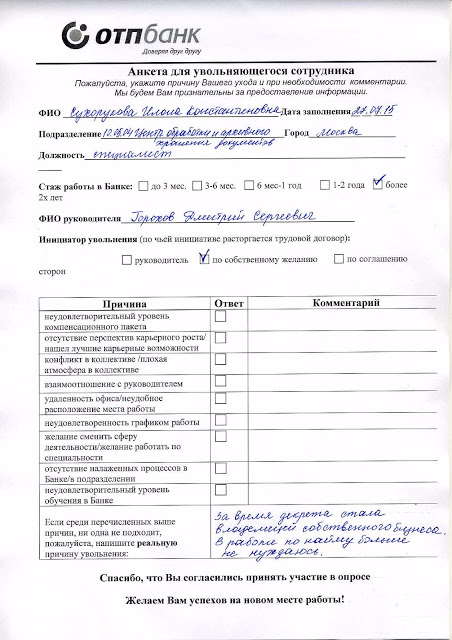 отпбанк
Доверяя друг другу
Анкета для увольняющегося сотрудника
Пожалуйста, укажите причину Вашего ухода и при необходимости комментарии.
Мы будем Вам признательны за предоставление информации.
ФИО Сухорукова Илона Константиновна Дата заполнения 27.07.15
Подразделение 12.05.04 Центр обработки и архивного Город Москва
хранения документов
Должность специалист
Стаж работы в Банке: до 3 мес. 3-6 мес. 6 мес-1 год 1-2 года более
2х лет
ФИО руководителя Горохов Дмитрий Сергеевич
Инициатор увольнения (по чьей инициативе расторгается трудовой договор):
руководитель по собственному желанию по соглашению
сторон
Причина Ответ Комментарий
неудовлетворительный уровень
компенсационного пакета
отсутствие перспектив карьерного роста/
нашел лучшие карьерные возможности
конфликт в коллективе /плохая
атмосфера в коллективе
взаимоотношение с руководителем
удаленность офиса/неудобное
расположение места работы
неудовлетворенность графиком работы
желание сменить сферу
деятельности/желание работать по
специальности
отсутствие налаженных процессов в
Банке/в подразделении
неудовлетворительный уровень
обучения в Банке
Если среди перечисленных выше
причин, ни одна не подходит,
пожалуйста, напишите реальную
причину увольнения:
За время декрета стала
владелицей собственного бизнеса.
В работе по найму больше
не нуждаюсь.
Спасибо, что Вы согласились принять участие в опросе
Желаем Вам успехов на новом месте работы!